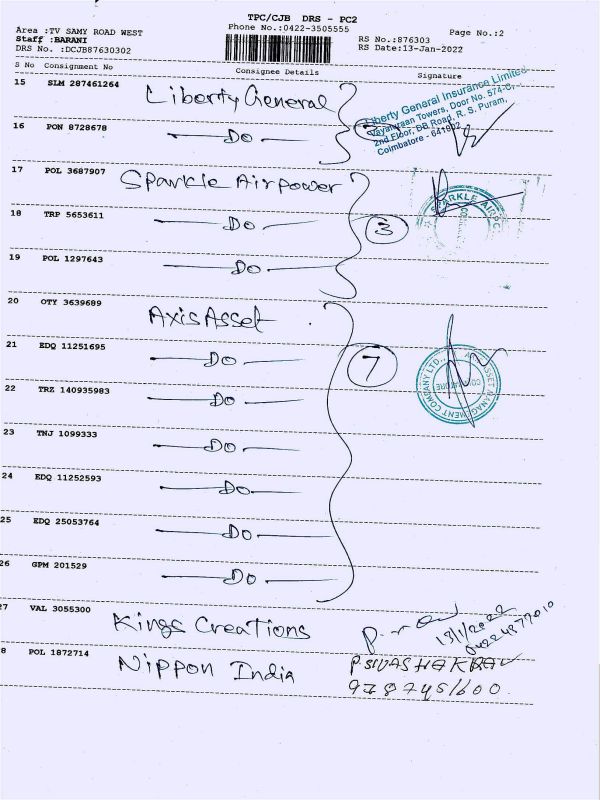 TPC/CJB DRS - PC2
Area :TV SAMY ROAD WEST
Phone No.:0422-3505555
Page No.:2
Staff :BARANI
RS No.:876303
DRS No. :DCJB87630302
RS Date:13-Jan-2022
S No Consignment No Consignee Details Signature
15 SLM 287461264 Liberty General
Liberty General Insurance Limited
Towers, Door No. 574-C,
2nd Floor, DB Road, R. S. Puram,
Coimbatore - 641002
16 PON 8728678 Do
17 POL 3687907 Sparkle Airpower
SPARKLE AIRPO
18 TRP 5653611 Do 3
19 POL 1297643 Do
20 OTY 3639689 Axis Asset
21 EDQ 11251695 Do 7
AXIS ASSET MANAGEMENT COMPANY LTD.,
22 TRZ 140935983 Do
23 TNJ 1099333 Do
24 EDQ 11252593 Do
25 EDQ 25053764 Do
26 GPM 201529 Do
27 VAL 3055300 Kings Creations
13/1/2022
8 POL 1872714 Nippon India
9787451600